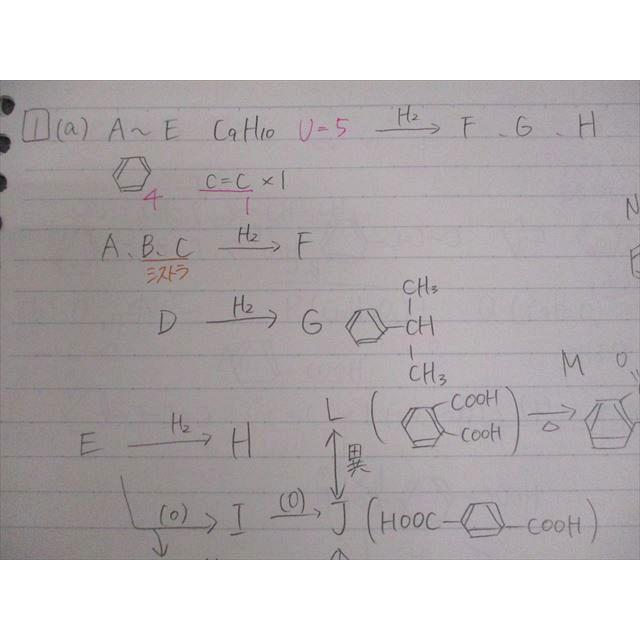 1 (a) A~E C9H10 U=5 H2→ F、G、H
4 C=C×1
1
A、B、C H2→ F
シストラ
D H2→ G CH3
CH
CH3
N
M O
L ( COOH COOH ) △→
E H2→ H
異
(O)→ I (O)→ J (HOOC COOH)